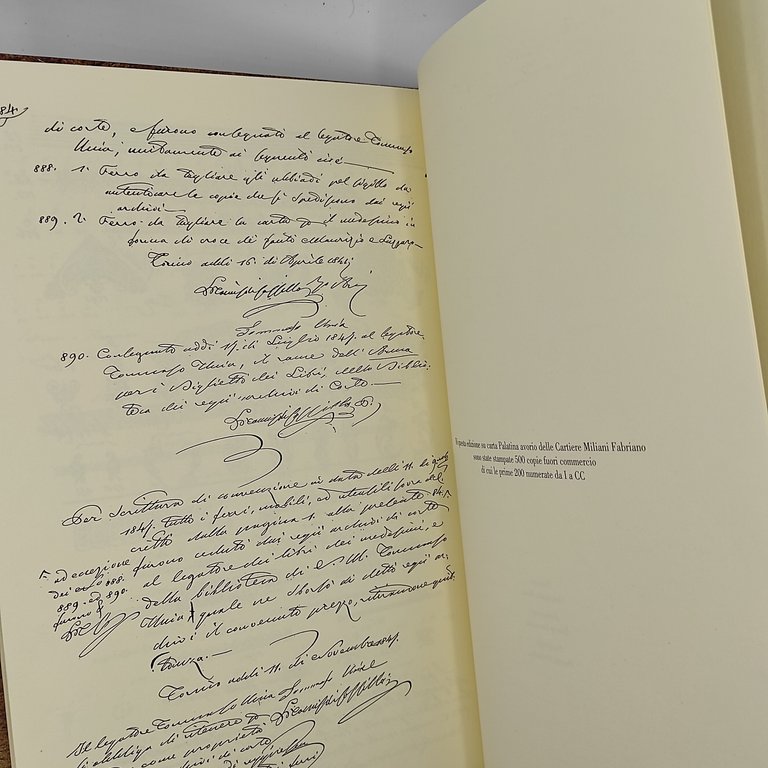 84.
di corte, e furono consegnati al legatore Tommaso
Unia, unitamente ai seguenti cioè
888. 1. Ferro da tagliare gli ubbiadi pel sigillo da
autenticare le copie che si spediscono dai regii
archivi
889. 2. Ferro da tagliare la carta pel medesimo in
forma di croce de' santi Maurizio e Lazzaro
Torino addì 16 di Aprile 1841.
Tommaso Unia
890. Consegnato addì di Luglio 1841. al legatore
Tommaso Unia, il rame dell'Arma
per i Biglietti dei Libri della Biblio-
teca dei regii archivi di Corte
Per scrittura di convenzione in data delli 11. di
1841. tutti i ferri, mobili, ed utensili sovra des-
critti dalla pagina 1. alla presente 84.
furono ceduti dai regii archivi di corte
ad eccezione
dei 888.
889. ed 890.
al legatore dei libri dei medesimi, e
della biblioteca di S. M. Tommaso
Unia quale ne sborsò ai detti regii ar-
chivi il convenuto prezzo,
tanza.
Torino addì 11. di Novembre 1841.
Il legatore Tommaso Unia
si obbliga di ritenere
come proprietà
di corte
In questa edizione su carta Palatina avorio delle Cartiere Miliani Fabriano
sono state stampate 500 copie fuori commercio
di cui le prime 200 numerate da I a CC